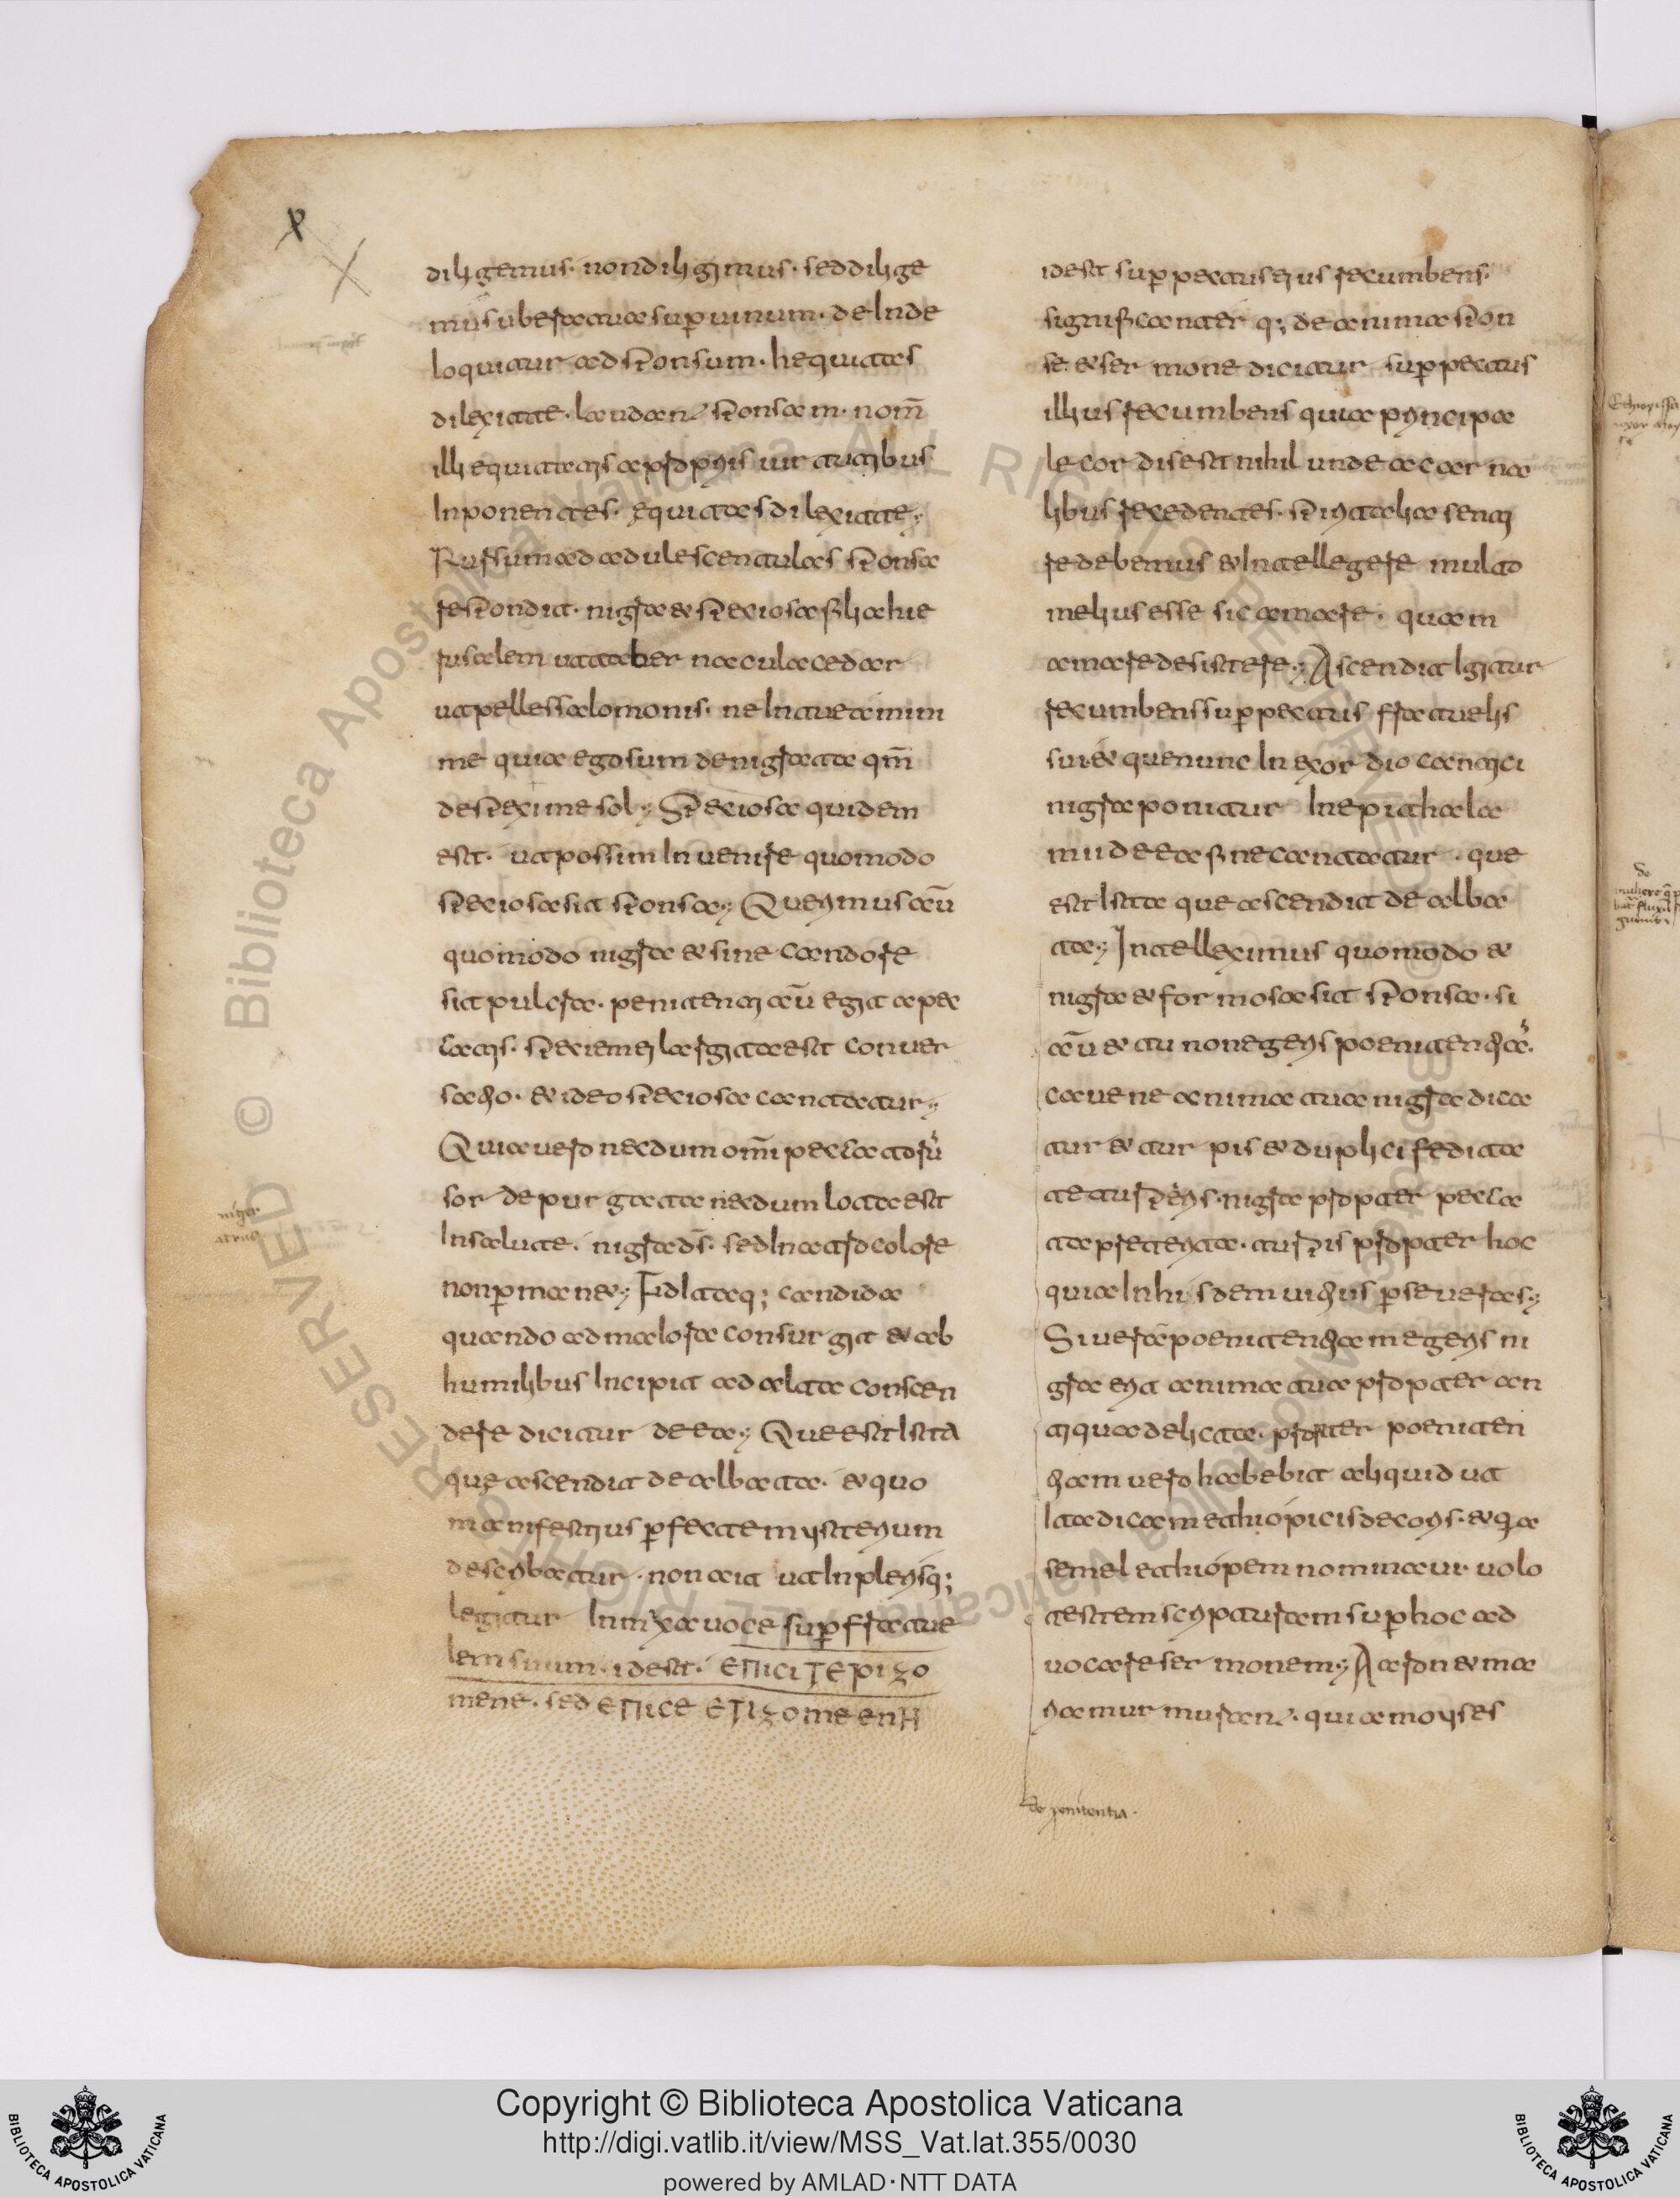 diligemus · non diligimus · sed dilige
mus ubera tua sup uinum · deInde
loquitur ad sponsum · hequitas
dilexit te · laudans sponsam · nom̄
illi equitatis a propriis uirtutibus
Inponentes · equitas dilexit te;
Rursum ad adulescentulas sponsa
respondit · nigra & speciosa filiahie
rusalem uttabernacula cedar
ut pelles salomonis · ne Intueamini
me quia ego sum denigrata qm̄
despexi me sol; Speciosa quidem
est · ut possim Inuenire quomodo
speciosa sit sponsa; Querimus aū
quomodo nigra & sine candore
sit pulcra · penitenti aū egit a pec
catis · speciem ei largita est conuer
satio · & ideo speciosa cantatur;
Quia uero necdum omni peccatorū
sor de purgata necdum lota est
In salute · nigra dr̄ · sed In atro colore
non p man&; Fid Itaq; candida
quando ad maiora consurgit & ab
humilibus Incipit ad alta conscen
dere dicitur de ea; Que est Ista
que ascendit de albata · & quo
manifestius pfecte misterium
describatur · non ait ut In plerisq;
legitur Innixa uoce sup fratrue
lem suum · idest · ЄΠICITEPIZO
mene · sed ЄΠICE ETIZOMEENH
idest sup pectus eius recumbens ·
significanter q; de anima spon
se & sermone dicitur sup pectus
illius recumbens quia principa
le cordis est nihil unde a carna
libus recedentes · spiritalia senti
re debemus & Intellegere multo
melius esse sic amare · quam
amare desistere; Ascendit Igitur
recumbens sup pectus fratuelis
sui & que nunc In exordio cantici
nigra ponitur In epithala
mii de ea fine cantatur · que
est Ista que ascendit de alba
ta; Intelleximus quomodo &
nigra & formosa sit sponsa · si
aū & tu non egeris poenitentiā ·
caue ne anima tua nigra dica
tur & turpis & duplici fedita
te turperis · nigra propter pecca
ta preterita · turpis propter hoc
quia In hisdem uitiis pseueras;
Si uero poenitentiam egeris ni
gra erit anima tua propter an
tiqua delicta · propter poeniten
tiam uero habebit aliquid ut
Ita dicam ethiopicis decoris · & qa
semel ethiopem nominaui · uolo
testem scripturam sup hoc ad
uocare sermonem; Aaron & ma
ria murmurant · quia moyses
de penitentia ·
Copyright © Biblioteca Apostolica Vaticana
http://digi.vatlib.it/view/MSS_Vat.lat.355/0030
powered by AMLAD·NTT DATA
BIBLIOTECA APOSTOLICA VATICANA
BIBLIOTECA APOSTOLICA VATICANA